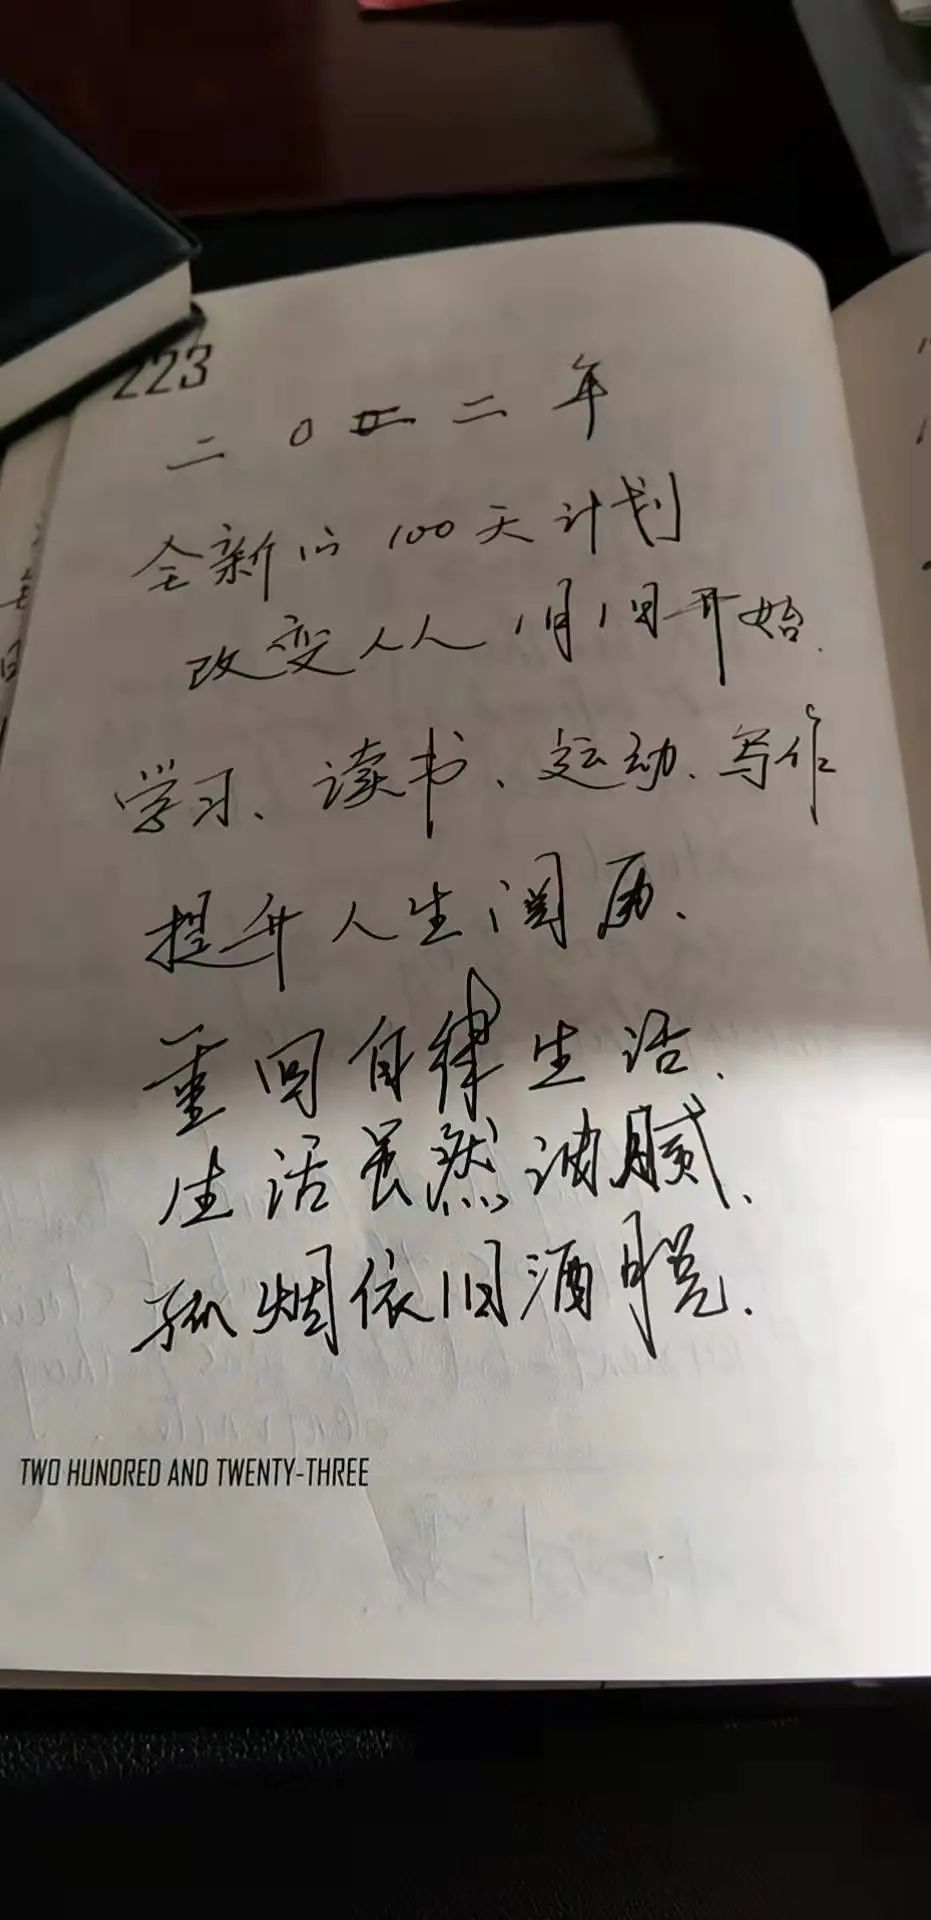 223
二〇二二年
全新的100天计划
改变人人1月1日开始.
学习、读书、运动、写作
提升人生阅历、
重回自律生活、
生活虽然油腻、
孤烟依旧洒脱.
TWO HUNDRED AND TWENTY-THREE